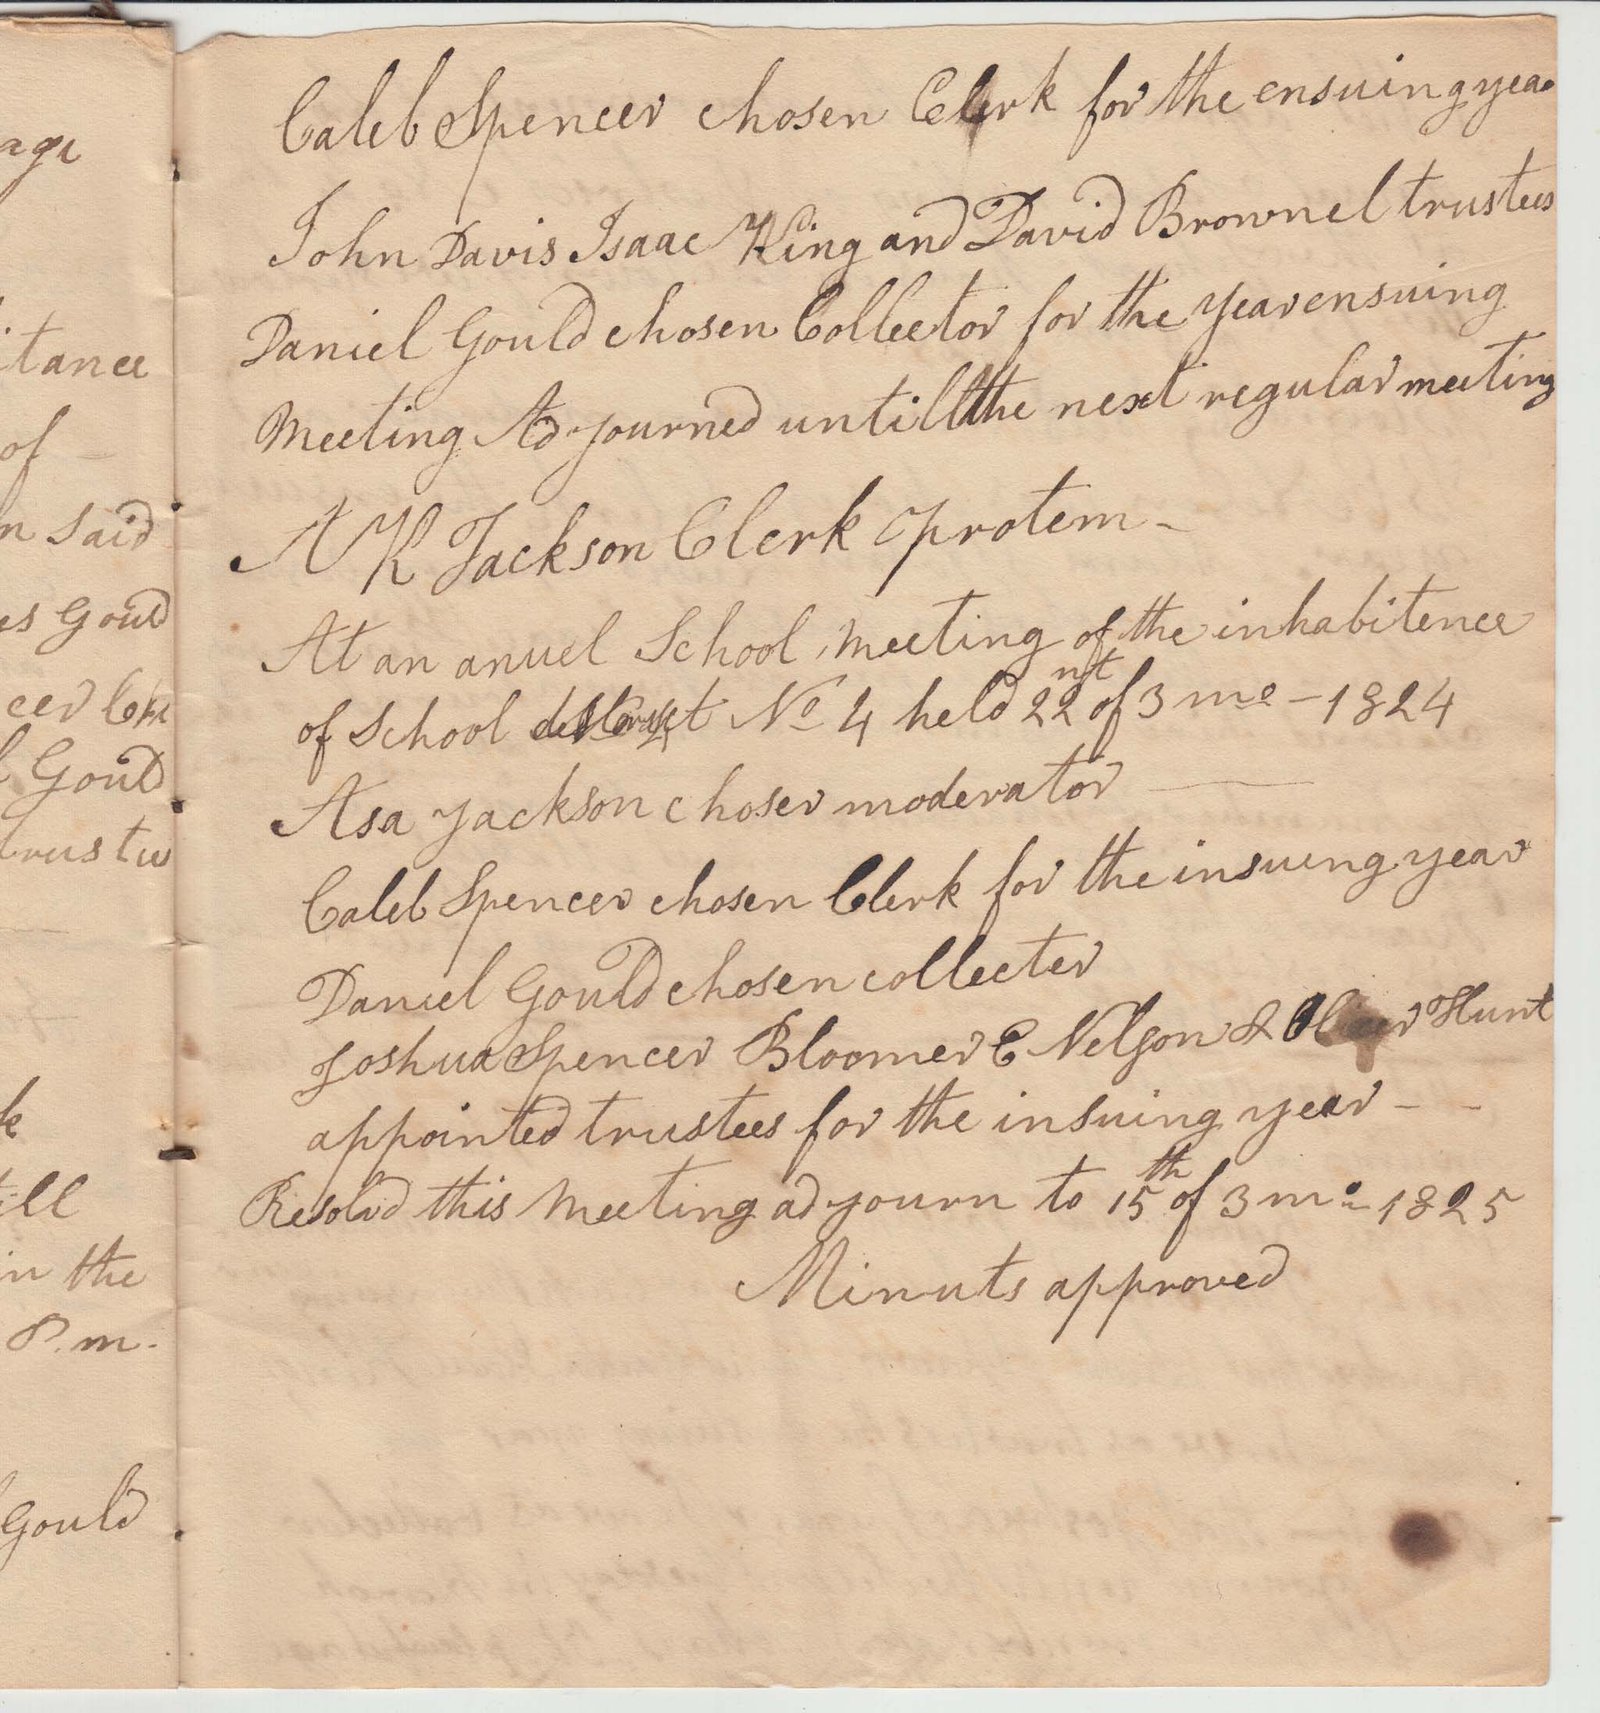 age
itance
of -
n Said
es Gould
cer Cler
l Gould
trustee
k
till
in the
P. m.
Gould
Caleb Spencer chosen Clerk for the ensuing year
John Davis Isaac King and David Brownel trustees
Daniel Gould chosen Collector for the year ensuing
Meeting Adjourned untill the next regular meeting
A K Jackson Clerk protem -
At an anuel School meeting of the inhabitence
of School No 4 held 22nt of 3 mo - 1824
Asa Jackson choser moderator
Caleb Spencer chosen Clerk for the insueng year
Daniel Gould chosen collecter
Joshua Spencer Bloomer C Nelson & Oliver Hunt
appointed trustees for the insuing year - -
Resolvd this meeting adjourn to 15th of 3 mo 1825
Minuts approved